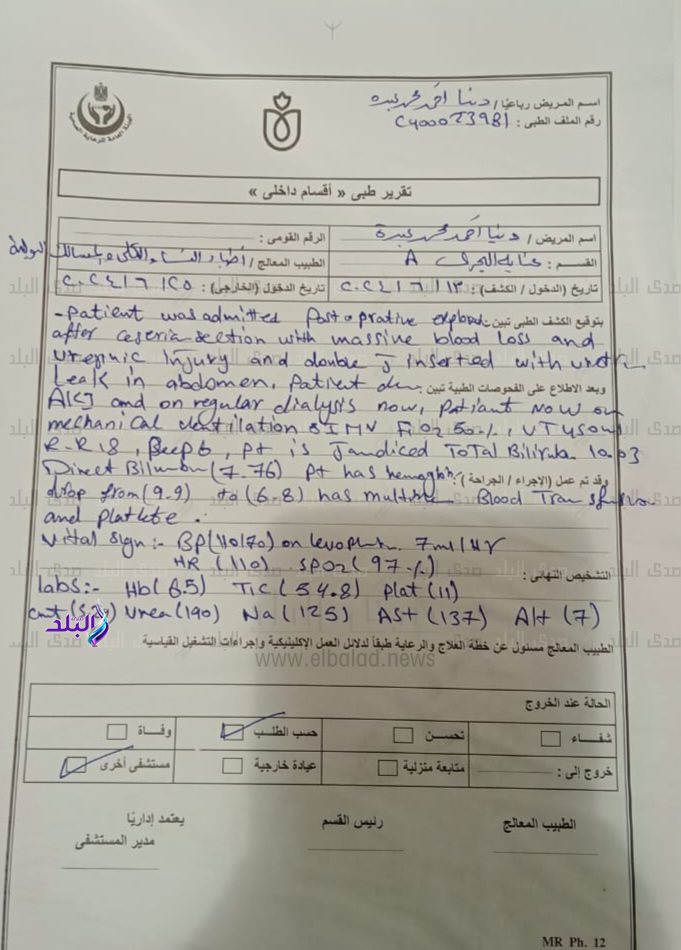 اسم المريض رباعيًا / دنيا احمد محمد عبده
رقم الملف الطبى :
الهيئة العامة للرعاية الصحية
تقرير طبى « أقسام داخلى »
اسم المريض / دنيا احمد محمد عبدة
الرقم القومى :
القسم : A
الطبيب المعالج / أطباء النساء والكلى والمسالك البولية
تاريخ (الدخول / الكشف) : ٢٠٢٤/٦/١٣
تاريخ الدخول (الخارجى) : ٢٠٢٤/٦/٢٥
بتوقيع الكشف الطبى تبين :
- patient was admitted Post oprative
after section with massive blood loss and
injury and double J inserted with
Leak in abdomen, Patient
وبعد الاطلاع على الفحوصات الطبية تبين :
AKI and on regular dialysis now, patiant now on
mechanical ventilation SIMV FiO2 50%, VT 450
R.R 18, Peep 6, pt is Jandiced ToTal 10.03
Direct (7.76) pt has
وقد تم عمل (الإجراء / الجراحة ) :
drop from (9.9) to (6.8) has Blood
and platlete .
Vital sign :- BP (110/70) on 7 ml/hr
HR (110) SPO2 (97 %)
التشخيص النهائى :
labs :- Hb (6.5) TLC (54.8) Plat (11)
Urea (190) Na (125) AST (137) Alt (7)
الطبيب المعالج مسئول عن خطة العلاج والرعاية طبقاً لدلائل العمل الإكلينيكية وإجراءات التشغيل القياسية
صدى البلد
www.elbalad.news
الحالة عند الخروج
شفاء تحسن حسب الطلب وفاة
خروج إلى : متابعة منزلية عيادة خارجية مستشفى أخرى
الطبيب المعالج رئيس القسم يعتمد إداريًا
مدير المستشفى
MR Ph. 12